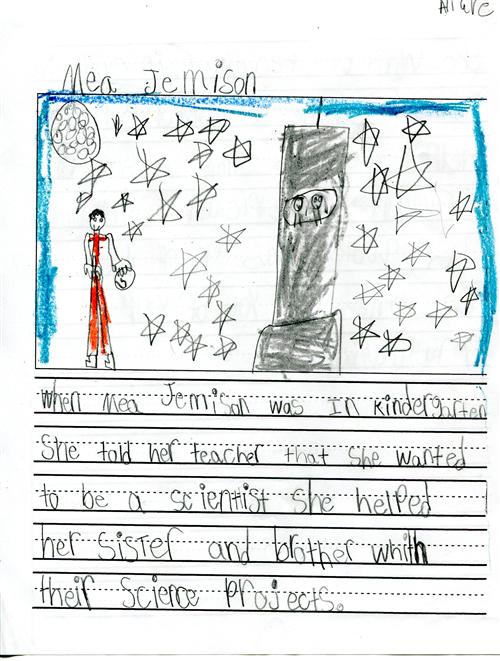 Mea Jemison
When Mea Jemison was In Kindergarten
She told her teacher that She wanted
to be a scientist She helped
her SiSTer and brother whith
their Science Projects.